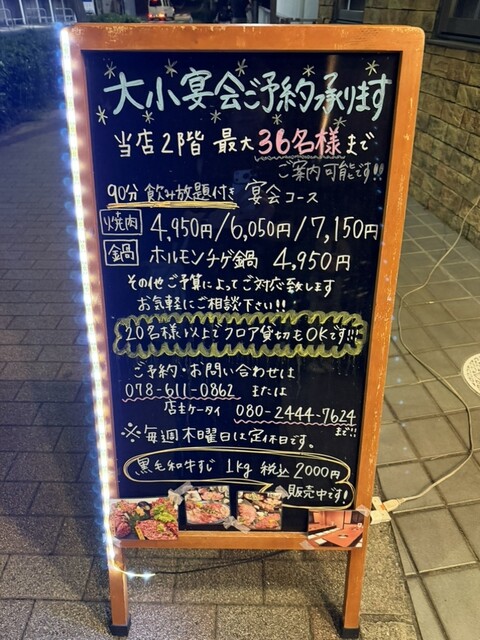 大小宴会ご予約承ります
当店2階 最大36名様まで
ご案内可能です!!
90分 飲み放題付き 宴会コース
焼肉 4,950円/6,050円/7,150円
鍋 ホルモンチゲ鍋 4,950円
その他ご予算によってご対応致します
お気軽にご相談下さい!!
20名様以上でフロア貸切もOKです!!!
ご予約・お問い合わせは
078-611-0862 または
店主ケータイ 080-2444-7624
まで!!
※毎週木曜日は定休日です。
黒毛和牛すじ 1kg 税込2000円
販売中です!